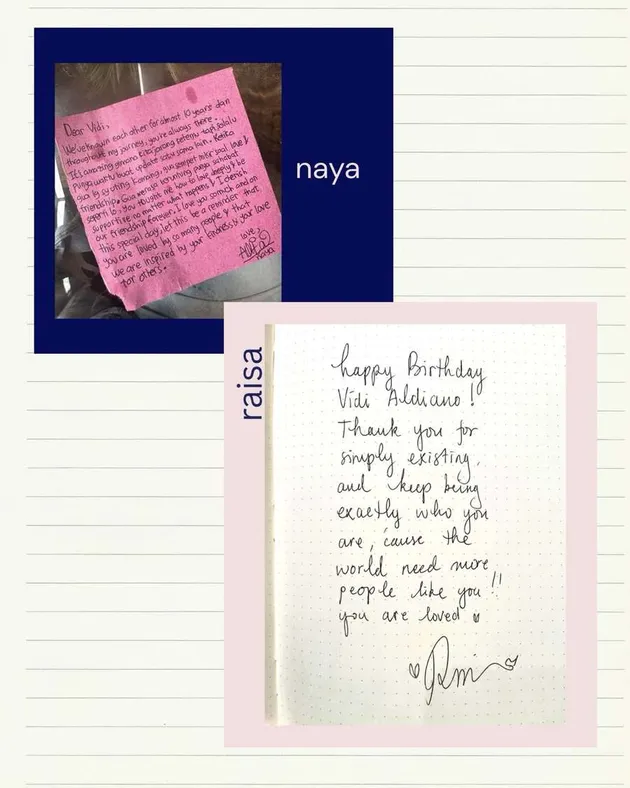 Dear Vidi,
We've known each other for almost 10 years dan
throughout my journey, you're always there.
It's amazing gimana kita jarang ketemu tapi selalu
punya waktu buat update satu sama lain. Ketika
gua lg syuting kemarin, gua sempet mikir soal love &
friendship. Gua merasa beruntung punya sahabat
seperti lo, you taught me how to love deeply & be
supportive no matter what happens & I cherish
our friendship forever. I love you so much and on
this special day, let this be a reminder that
you are loved by so many people & that
we are inspired by your kindness & your love
for others.
love,
Naya
naya
raisa
happy Birthday
Vidi Aldiano!
Thank you for
simply existing,
and keep being
exactly who you
are, 'cause the
world need more
people like you!!
you are loved